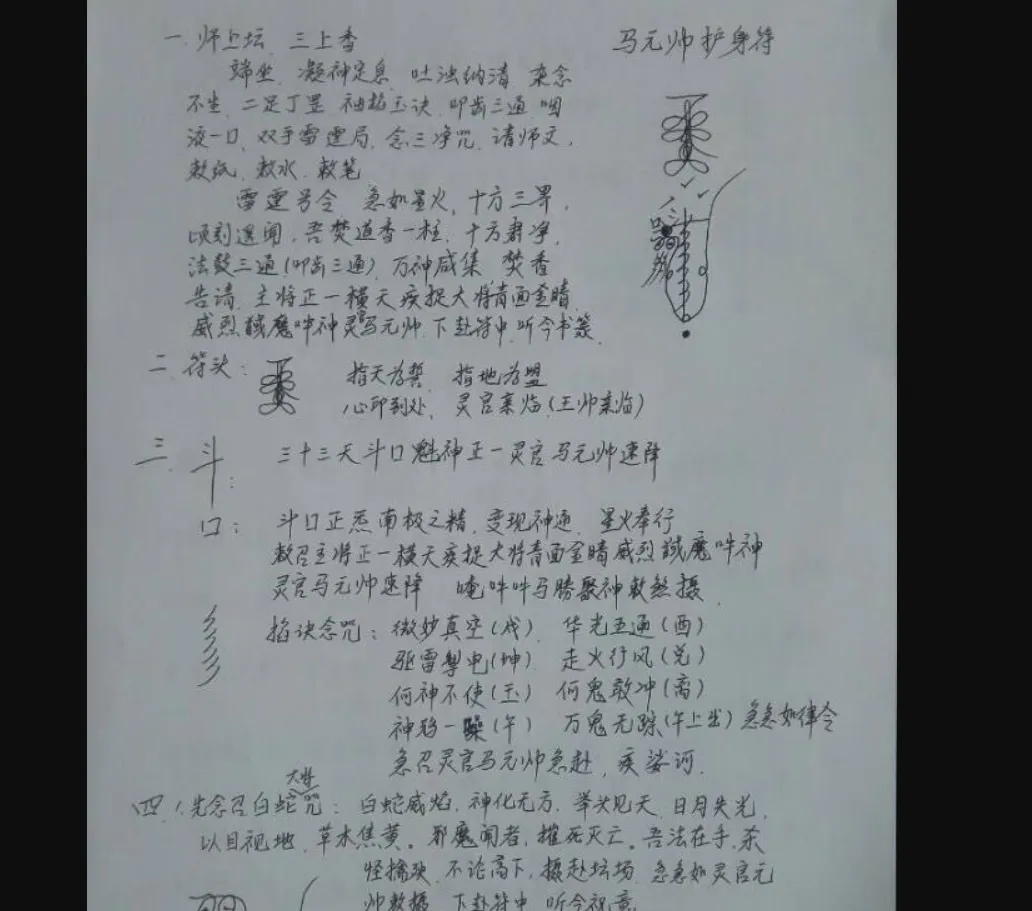 一、师上坛、三上香
马元帅护身符
端坐、凝神定息、吐浊纳清、杂念
不生、二足丁罡、袖掐玉诀、叩齿三通、咽
液一口、双手雷霆局、念三净咒、请师文、
敕纸、敕水、敕笔
雷霆号令、急如星火、十方三界、
顷刻遥闻、吾焚道香一柱、十方肃净、
法鼓三通(叩齿三通)、万神咸集、焚香
告请、主将正一横天疾捉大将青面金睛
威烈馘魔吽神灵官马元帅、下赴符中、听今书篆、
二、符头:
指天为誓、指地为盟
心印到处、灵官亲临(王帅亲临)
三、斗:
三十三天斗口魁神正一灵官马元帅速降
口:
斗口正炁南极之精、变现神通、星火奉行
敕召主将正一横天疾捉大将青面金睛威烈馘魔吽神
灵官马元帅速降 唵吽吽马胜聚神敕煞摄
掐诀念咒:微妙真空(戌)、华光五通(酉)
驱雷掣电(坤)、走火行风(兑)
何神不使(玉)、何鬼敢冲(离)
神鸦一噪(午)、万鬼无踪(午上出)急急如律令
急召灵官马元帅急赴、疾娑诃、
大将
四、先念召白蛇咒:白蛇威焰、神化无方、举头见天、日月失光、
以目视地、草木焦黄。邪魔闻者、摧死灭亡。吾法在手、杀
怪擒 不论高下、摄赴坛场、急急如灵官元
帅敕摄、下赴符中、听今祝意、